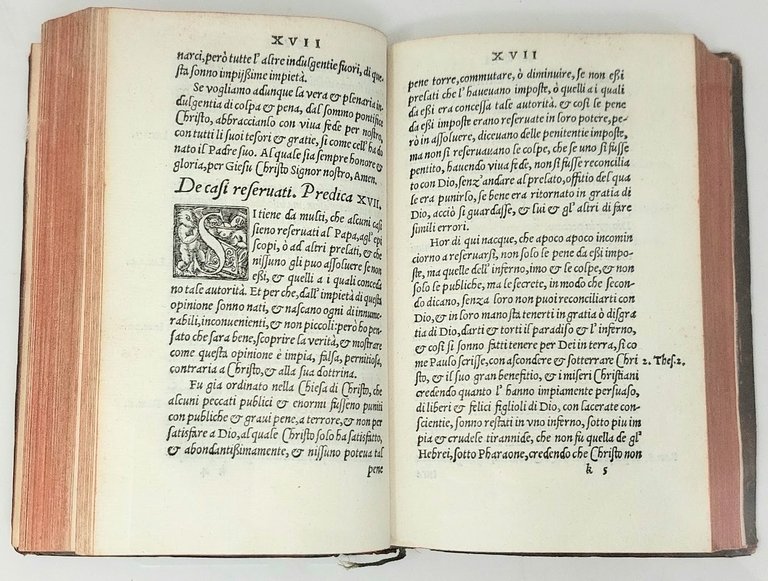 XVII
narci, però tutte l'altre indulgentie fuori, di que-
sta sonno impijssime impietà.
Se vogliamo adunque la vera & plenaria in-
dulgentia di colpa & pena, dal sommo pontifice
Christo, abbracciamlo con viva fede per nostro,
con tutti li suoi tesori & gratie, si come cell' ha do
nato il Padre suo. Al quale sia sempre honore &
gloria, per Giesu Christo Signor nostro, Amen.
De casi reservati. Predica XVII.
SI tiene da multi, che alcuni casi
sieno reservati al Papa, agl' epi
scopi, ò ad altri prelati, & che
nissuno gli puo assoluere se non
eßi, & quelli a i quali conceda
no tale autorità. Et per che, dall' impietà di questa
opinione sonno nati, & nascano ogni di innume-
rabili, inconuenienti, & non piccoli: però ho pen-
sato che sara bene, scoprire la verità, & mostrare
come questa opinione è impia, falsa, pernitiosa,
contraria a Christo, & alla sua dottrina.
Fu gia ordinato nella Chiesa di Christo, che
alcuni peccati publici & enormi fusseno puniti
con publiche & graui pene, a terrore, & non per
satisfare a Dio, al quale Christo solo ha satisfatto,
& abondantißimamente, & nissuno poteva tal
pene
XVII
pene torre, commutare, ò diminuire, se non eßi
prelati che l' haueuano imposte, ò quelli a i quali
da eßi era concessa tale autorità. & cosi le pene
da eßi imposte erano reseruate in loro potere, pe-
rò in assoluere, diceuano delle penitentie imposte,
ma non si reseruauano le colpe, che se uno si fusse
pentito, hauendo viua fede, non si fusse reconcilia
to con Dio, senz' andare al prelato, offitio del qua
le era punirlo, se bene era ritornato in gratia di
Dio, acciò si guardasse, & lui & gl' altri di fare
simili errori.
Hor di qui nacque, che apoco apoco incomin
ciorno a reseruarsi, non solo le pene da eßi impo-
ste, ma quelle dell' inferno, imo & le colpe, & non
solo le publiche, ma le secrete, in modo che secon-
do dicano, senza loro non puoi reconciliarti con
Dio, & in loro mano sta tenerti in gratia ò disgra
tia di Dio, darti & torti il paradiso & l' inferno,
& cosi si sonno fatti tenere per Dei in terra, si co
me Paulo scrisse, con ascondere & sotterrare Chri 2. Thes. 2.
sto, & il suo gran benefitio, & i miseri Christiani
credendo quanto l' hanno impiamente persuaso,
di liberi & felici figlioli di Dio, con lacerate con-
scientie, sonno restati in vno inferno, sotto piu im
pia & crudele tirannide, che non fu quella de gl'
Hebrei, sotto Pharaone, credendo che Christo non
k 5